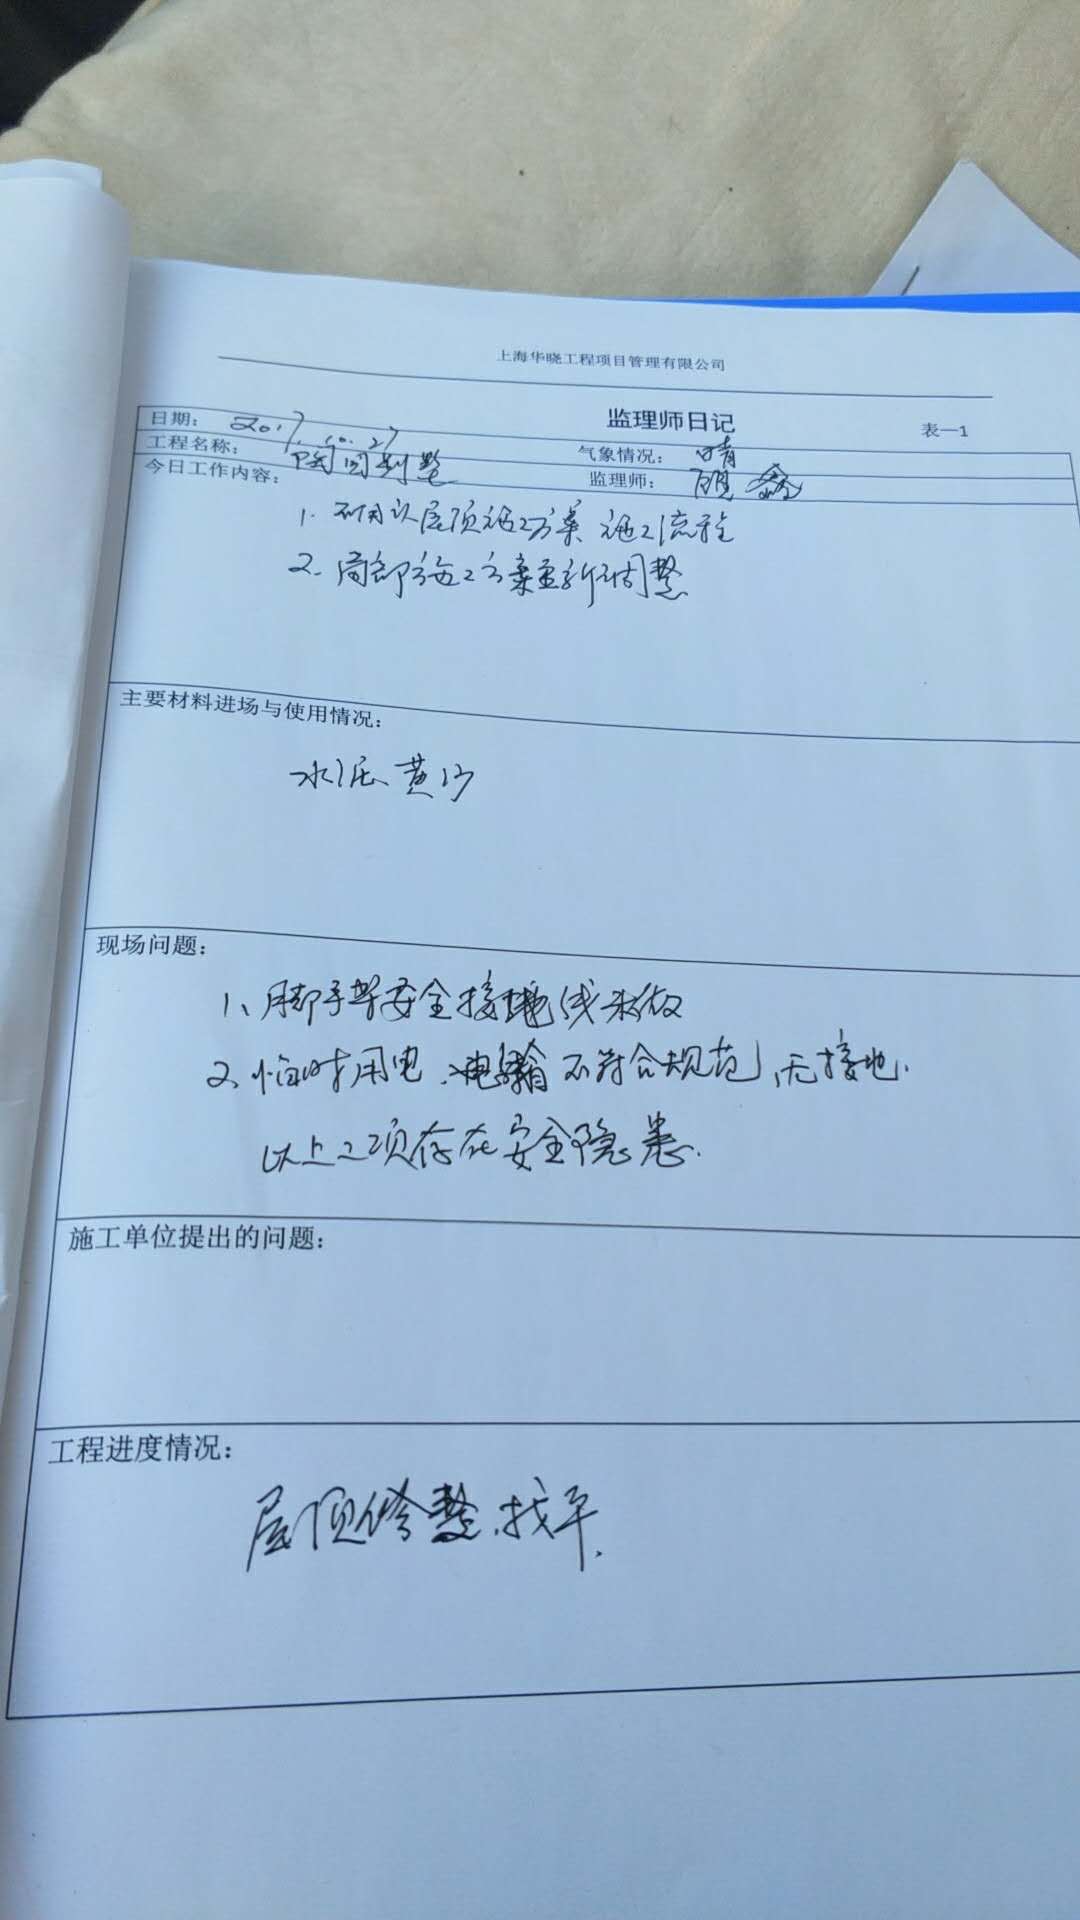 上海华晓工程项目管理有限公司
监理师日记 表一1
日期: 2017.10.27 气象情况: 晴
工程名称: 陶园别墅 监理师: 顾鑫
今日工作内容:
1. 确认屋顶施工方案 施工流程
2. 局部施工方案重新调整
主要材料进场与使用情况:
水泥、黄沙
现场问题:
1、脚手架安全接地线未做
2、临时用电、电箱不符合规范,无接地.
以上2项存在安全隐患.
施工单位提出的问题:
工程进度情况:
屋顶修整、找平.